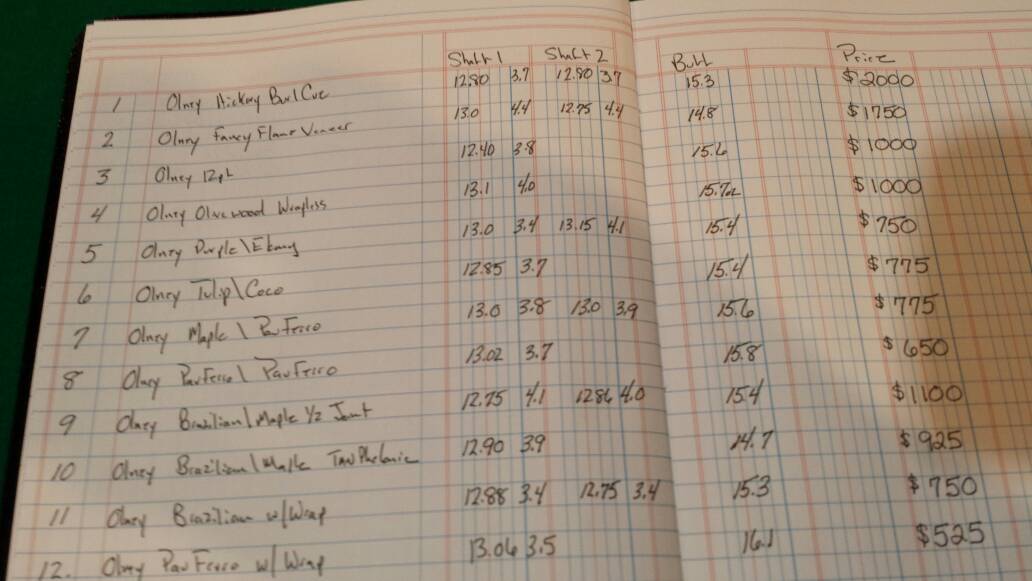 Shaft 1 Shaft 2 Butt Price
1 Olney Hickory Burl Cue 12.80 3.7 12.80 3.7 15.3 $2000
2 Olney Fancy Flame Veneer 13.0 4.4 12.75 4.4 14.8 $1750
3 Olney 12pt 12.40 3.8 15.6 $1000
4 Olney Olivewood Wrapless 13.1 4.0 15.7oz $1000
5 Olney Purple\Ebony 13.0 3.4 13.15 4.1 15.4 $750
6 Olney Tulip\Coco 12.85 3.7 15.4 $775
7 Olney Maple \ Pau Ferro 13.0 3.8 13.0 3.9 15.6 $775
8 Olney Pau Ferro \ Pau Ferro 13.02 3.7 15.8 $650
9 Olney Brazilian\Maple 1/2 Joint 12.75 4.1 12.86 4.0 15.4 $1100
10 Olney Brazilian\Maple Tan Phelonic 12.90 3.9 14.7 $925
11 Olney Brazilian w/Wrap 12.88 3.4 12.75 3.4 15.3 $750
12. Olney Pau Ferro w/ Wrap 13.06 3.5 16.1 $525